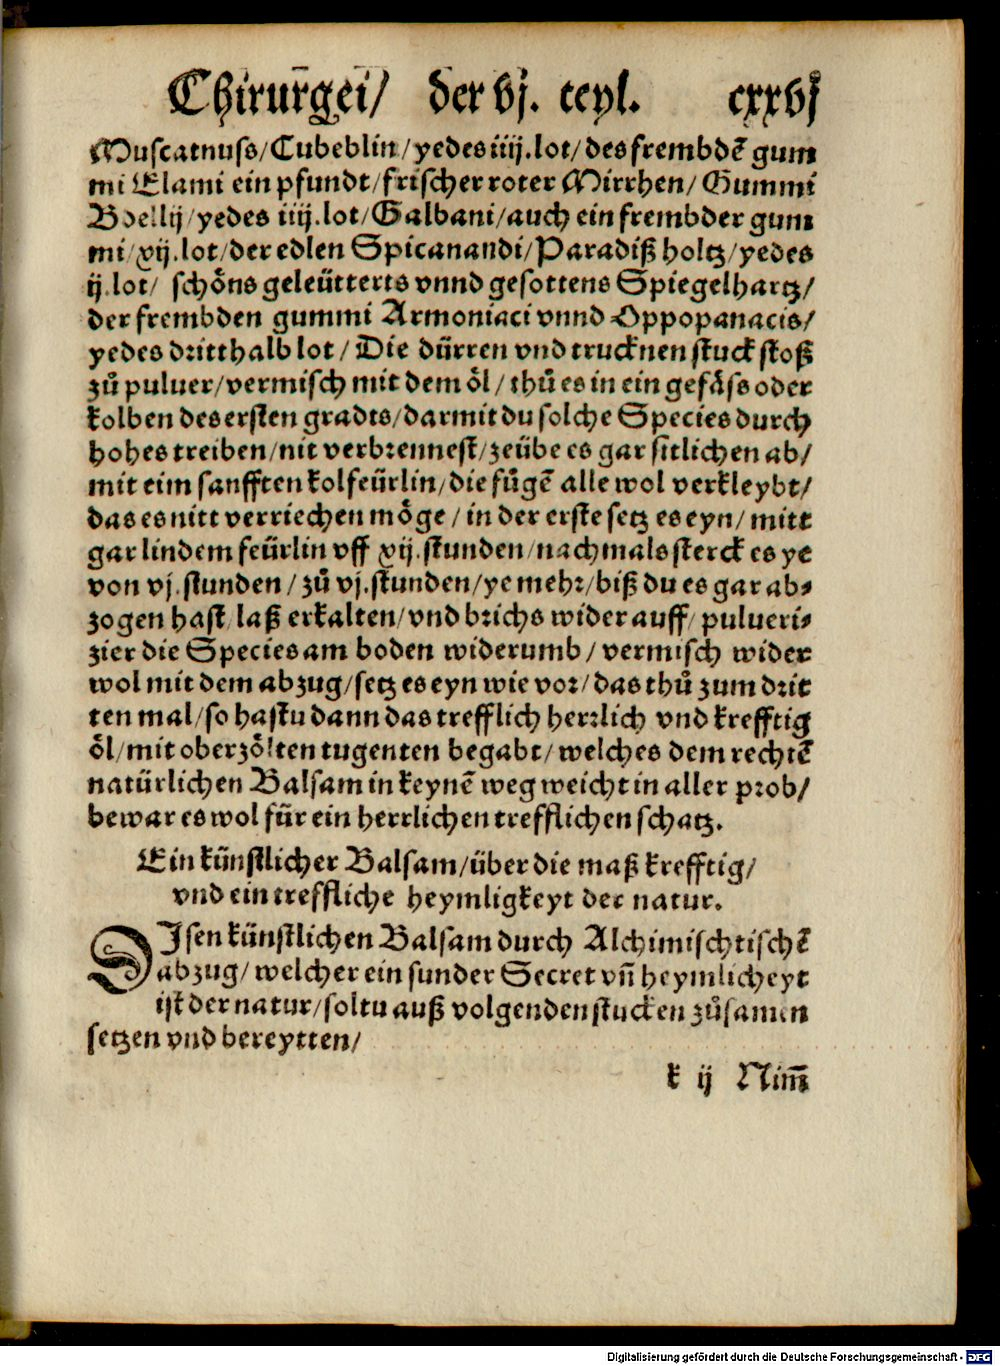 Chirurgei/ der vj. teyl. cxxvj
Muscatnuss/Cubeblin/yedes iiij.lot/des frembdē gum
mi Elami ein pfundt/frischer roter Mirrhen/Gummi
Bdellij/yedes iiij.lot/Galbani/auch ein frembder gum
mi/xij.lot/der edlen Spicanandi/Paradiß holtz/yedes
ij.lot/ schöns geleütterts vnnd gesottens Spiegelhartz/
der frembden gummi Armoniaci vnnd Oppopanacis/
yedes dritthalb lot/Die dürren vnd trucknen stuck stoß
zů puluer/vermisch mit dem öl/thů es in ein gefäss oder
kolben des ersten gradts/darmit du solche Species durch
hohes treiben/nit verbrennest/zeübe es gar sitlichen ab/
mit eim sanfften kolfeürlin/die fůgē alle wol verkleybt/
das es nitt verriechen möge/in der erste setz es eyn/mitt
gar lindem feürlin vff xij.stunden/nachmals sterck es ye
von vj.stunden/zů vj.stunden/ye mehr/biß du es gar ab⸗
zogen hast/laß erkalten/vnd brichs wider auff/pulueri⸗
zier die Species am boden widerumb/vermisch wider
wol mit dem abzug/setz es eyn wie vor/das thů zum drit
ten mal/so hastu dann das trefflich herrlich vnd krefftig
öl/mit oberzölten tugenten begabt/welches dem rechtē
natürlichen Balsam in keynē weg weicht in aller prob/
bewar es wol für ein herrlichen trefflichen schatz.
Ein künstlicher Balsam/über die maß krefftig/
vnd ein treffliche heymligkeyt der natur.
DIsen künstlichen Balsam durch Alchimischtischē
abzug/welcher ein sunder Secret vñ heymlicheyt
ist der natur/soltu auß volgenden stucken zůsamen
setzen vnd bereytten/
k ij Nim̄
Digitalisierung gefördert durch die Deutsche Forschungsgemeinschaft - DFG